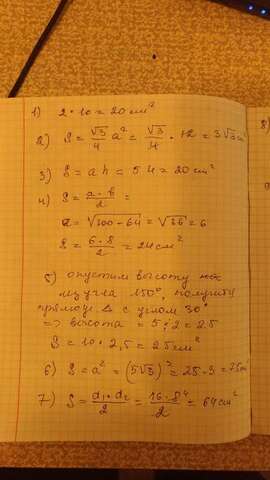 1) 2 · 10 = 20 см²
2) S = √3/4 a² = √3/4 · 12 = 3√3 см²
3) S = a h = 5 · 4 = 20 см²
4) S = a · b / 2 =
a = √100 - 64 = √36 = 6
S = 6 · 8 / 2 = 24 см²
5) опустим высоту из
угла 150°, получим
прямоуг. Δ с углом 30°
=> высота = 5 : 2 = 2.5
S = 10 · 2,5 = 25 см²
6) S = a² = (5√3)² = 25 · 3 = 75 см²
7) S = d₁ · d₂ / 2 = 16 · 8 4 / 2 = 64 см²
8)